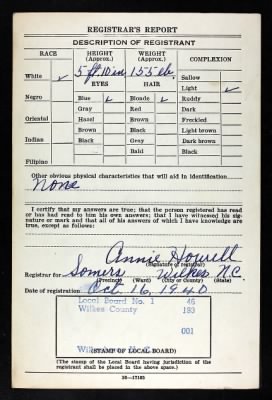 REGISTRAR'S REPORT
DESCRIPTION OF REGISTRANT
RACE HEIGHT (Approx.) WEIGHT (Approx.) COMPLEXION
5 ft. 10 in 155 lb. Sallow
White ✓ EYES HAIR Light ✓
Negro Blue ✓ Blonde ✓ Ruddy
Gray Red Dark
Oriental Hazel Brown Freckled
Indian Brown Black Light brown
Black Gray Dark brown
Filipino Bald Black
Other obvious physical characteristics that will aid in identification
None
I certify that my answers are true; that the person registered has read or has had read to him his own answers; that I have witnessed his signature or mark and that all of his answers of which I have knowledge are true, except as follows:
Annie Howell
(Signature of registrar)
Registrar for Somers Wilkes N.C.
(Precinct) (Ward) (City or County) (State)
Date of registration Oct 16, 1940
Local Board No. 1 46
Wilkes County 193
001
(STAMP OF LOCAL BOARD)
(The stamp of the Local Board having jurisdiction of the registrant shall be placed in the above space.)